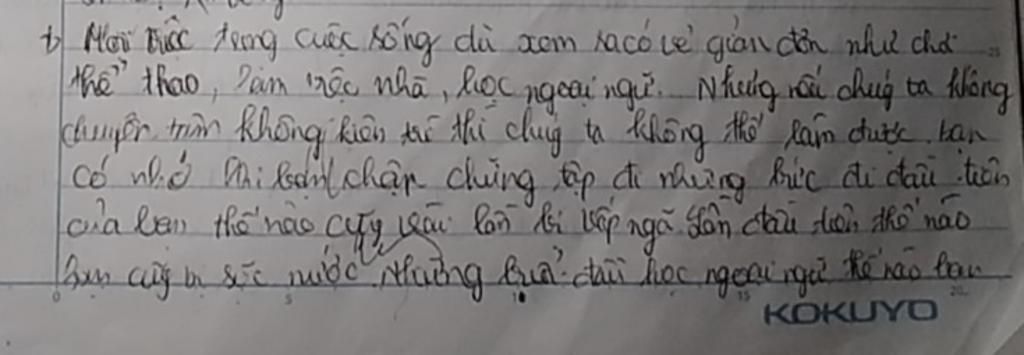 Mọi việc trong cuộc sống dù xem ra có vẻ giản đơn như chơi
thể thao, làm việc nhà, học ngoại ngữ. Nhưng nếu chúng ta không
chuyên tâm không kiên trì thì chúng ta không thể làm được. bạn
có nhớ khi chập chững tập đi những bước đi đầu tiên
của bạn thế nào cũng vài lần bị vấp ngã. lần đầu tiên thế nào
bạn cũng bị sặc nước. Những buổi đầu học ngoại ngữ thế nào bạn
KOKUYO